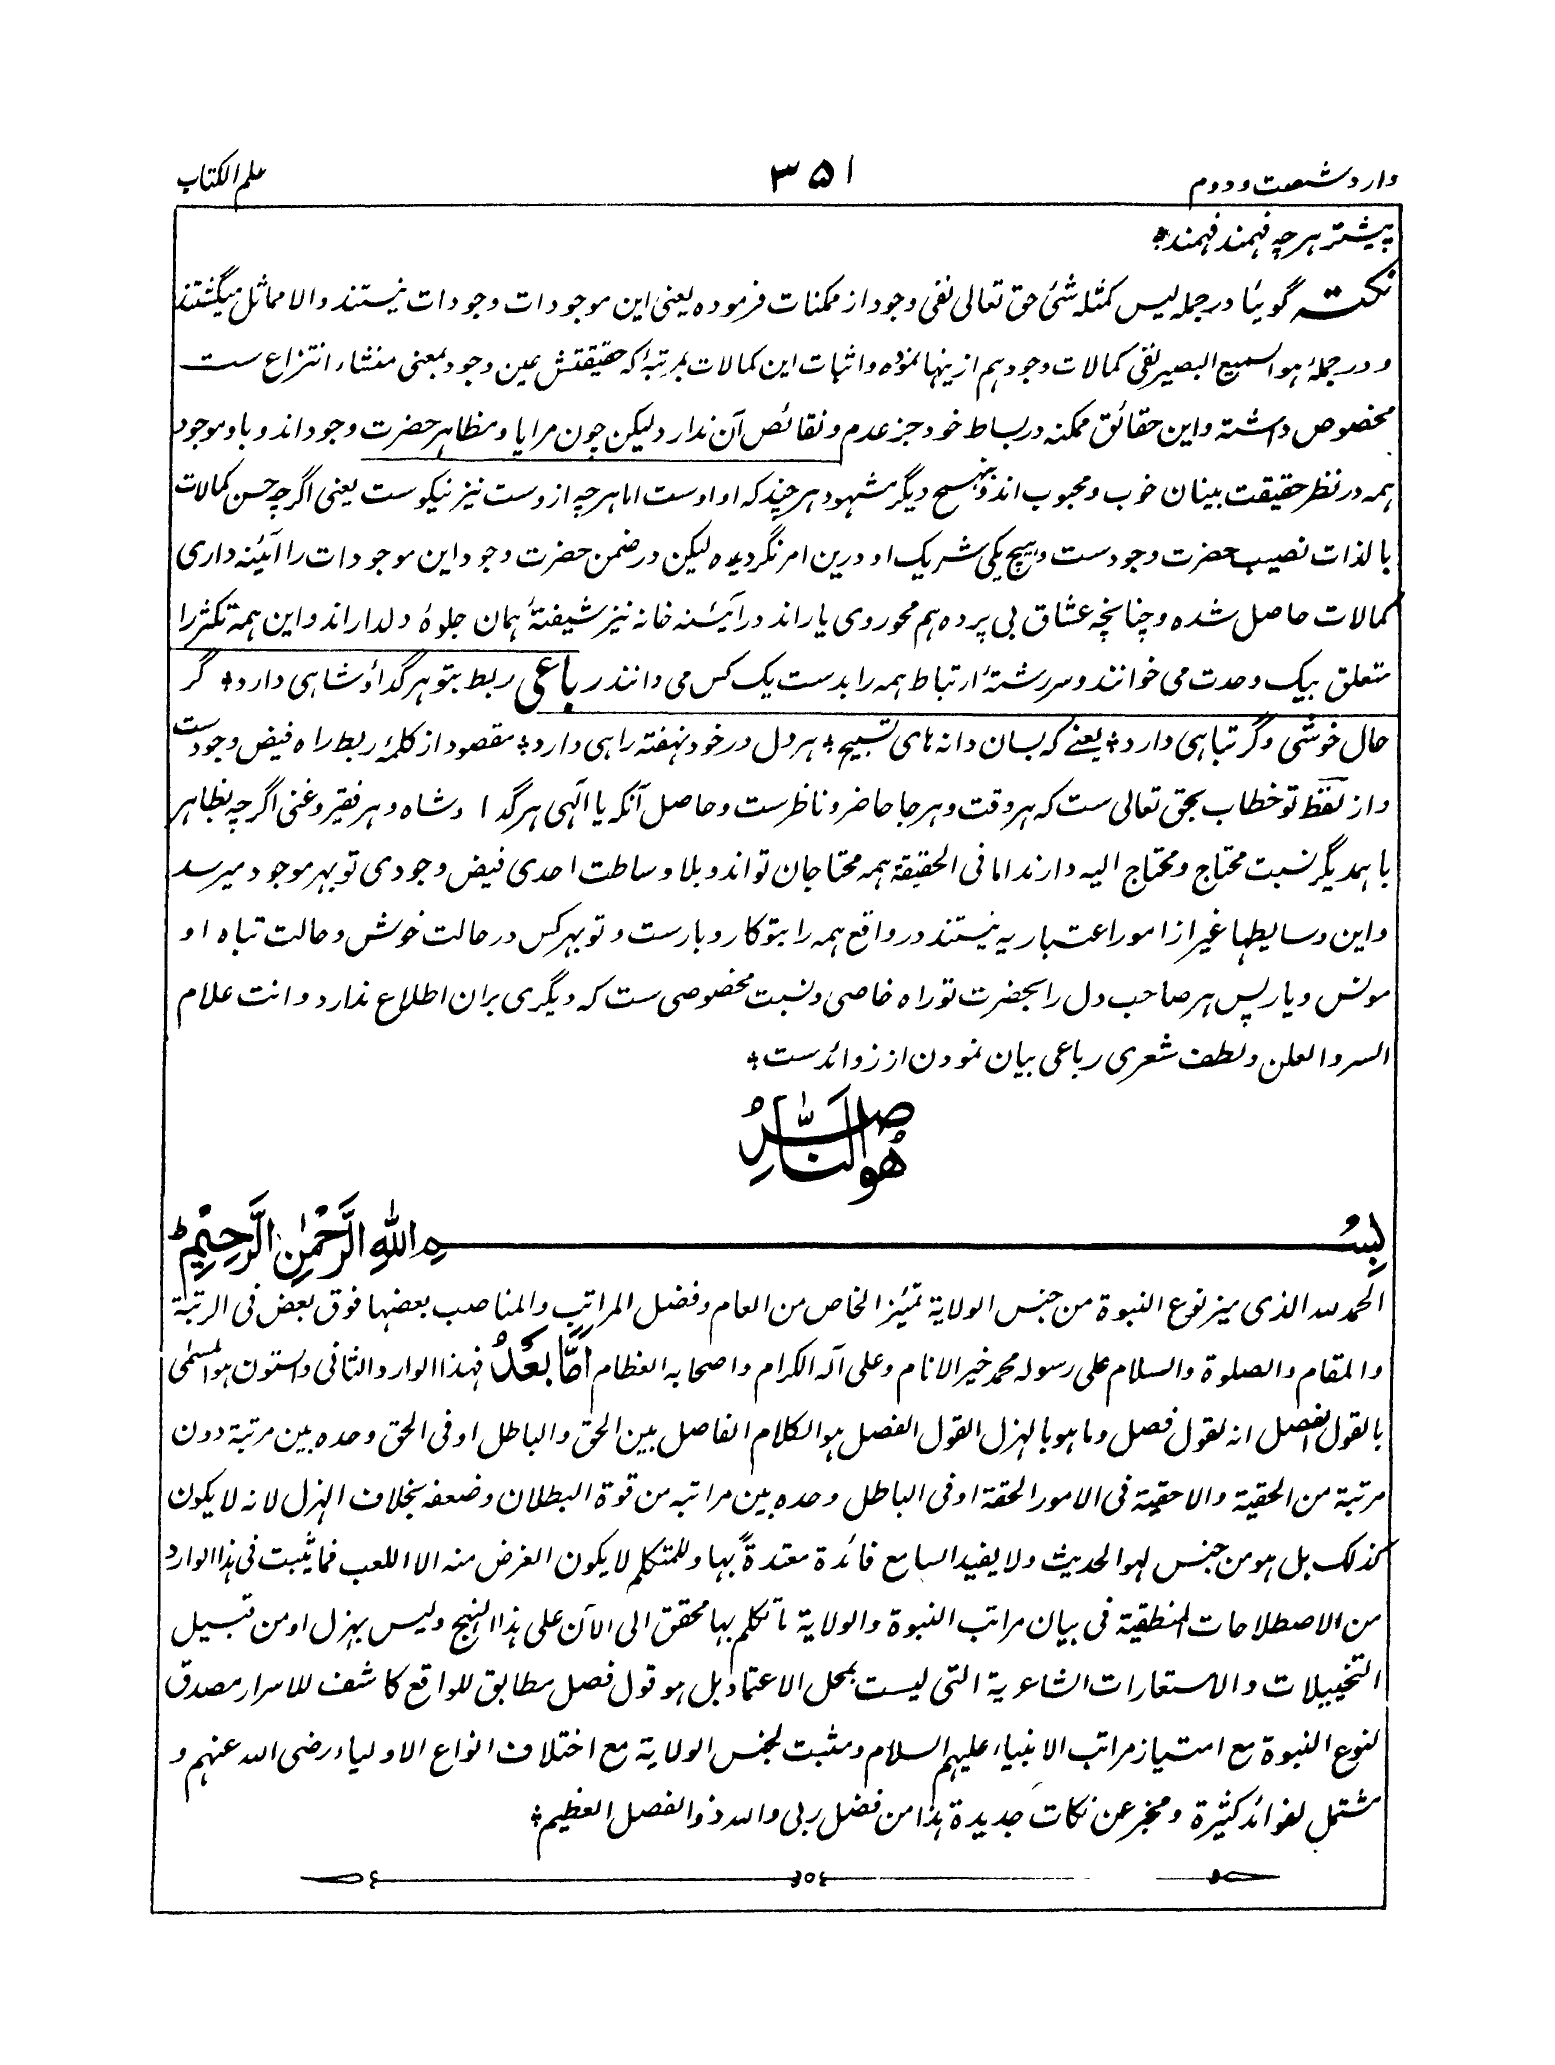 وارد شصت و دوم
۳۵۱
علم الکتاب
پیشتر هرچه فهمند فهمند
نکته گویا در جمله لیس کمثله شئ حق تعالی نفی وجود از ممکنات فرموده یعنی این موجودات وجودات نیستند والا مماثل میگشتند
و در جملهٔ هو السمیع البصیر نفی کمالات وجود هم ازینها نموده و اثبات این کمالات بمرتبهٔ که حقیقتش عین وجود بمعنی منشاء انتزاع ست
مخصوص داشته و این حقائق ممکنه در بساط خود جز عدم و نقائص آن ندارد لیکن چون مرایا و مظاهر حضرت وجود اند و باو موجود
همه در نظر حقیقت بینان خوب و محبوب اند و بنهج دیگر مشهود هر چند که او اوست اما هرچه از وست نیز نیکوست یعنی اگرچه حسن کمالات
بالذات نصیب حضرت وجودست و هیچ یکی شریک او درین امر نگردیده لیکن در ضمن حضرت وجود این موجودات را آئینه داری
کمالات حاصل شده و چنانچه عشاق بی پرده هم محو روی یار اند در آئینه خانه نیز شیفتهٔ همان جلوهٔ دلدار اند و این همه تکثر را
متعلق بیک وحدت می خوانند و سررشتهٔ ارتباط همه را بدست یک کس می دانند رباعی ربط بتو هر گدا و شاهی دارد گر
حال خوشی وگر تباهی دارد یعنے که بسان دانه های تسبیح هر دل در خود نهفته راهی دارد مقصود از کلمهٔ ربط راه فیض وجودست
و از لفظ تو خطاب بحق تعالی ست که هر وقت و هر جا حاضر و ناظرست و حاصل آنکه یا الٰهی هر گدا و شاه و هر فقیر و غنی اگرچه بظاهر
با همدیگر نسبت محتاج و محتاج الیه دارند اما فی الحقیقة همه محتاجان تو اند و بلا وساطت احدی فیض وجودی تو بهر موجود میرسد
و این وسایطها غیر از امور اعتباریه نیستند در واقع همه را بتو کار و بارست و تو بهر کس در حالت خوش و حالت تباه او
مونس و یار پس هر صاحب دل را بحضرت تو راه خاصی و نسبت مخصوصی ست که دیگری بران اطلاع ندارد و انت علام
السر والعلن و لطف شعری رباعی بیان نمودن از زوائدست
هو الناصر
بسم الله الرحمن الرحیم
الحمد لله الذی میز نوع النبوة من جنس الولایة تمیز الخاص من العام و فضل المراتب والمناصب بعضها فوق بعض فی الرتبة
والمقام والصلوة والسلام علی رسوله محمد خیر الانام و علی آله الکرام و اصحابه العظام اما بعد فهذا الوارد الثانی والستون هو المسمی
بالقول الفصل انه لقول فصل وما هو بالهزل القول الفصل هو الکلام الفاصل بین الحق والباطل او فی الحق وحده بین مرتبة دون
مرتبة من الحقیة والاحقیة فی الامور الحقة او فی الباطل وحده بین مراتبه من قوة البطلان وضعفه بخلاف الهزل لانه لا یکون
کذلک بل هو من جنس لهو الحدیث ولا یفید السامع فائدة معتدة بها وللمتکلم لا یکون الغرض منه الا اللعب فما یثبت فی هذا الوارد
من الاصطلاحات المنطقیة فی بیان مراتب النبوة والولایة ما تکلم بها محقق الی الآن علی هذا النهج ولیس بهزل او من قبیل
التخییلات والاستعارات الشاعریة التی لیست بمحل الاعتماد بل هو قول فصل مطابق للواقع کاشف للاسرار مصدق
لنوع النبوة مع امتیاز مراتب الانبیاء علیهم السلام ومثبت لجنس الولایة مع اختلاف انواع الاولیاء رضی الله عنهم و
مشتمل لفوائد کثیرة و مخبر عن نکات جدیدة هذا من فضل ربی والله ذو الفضل العظیم